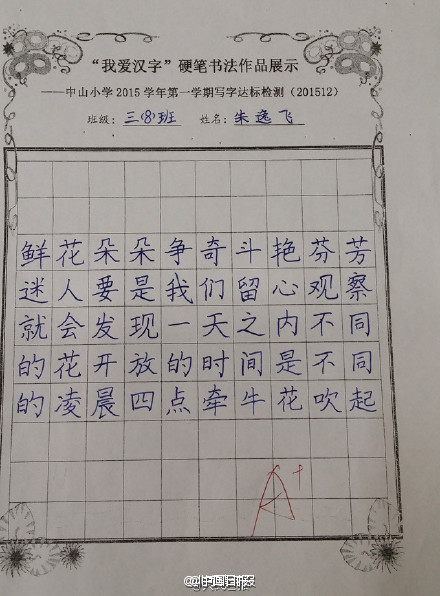 “我爱汉字”硬笔书法作品展示
——中山小学2015学年第一学期写字达标检测（201512）
班级：三(8)班 姓名：朱逸飞
鲜花朵朵争奇斗艳芬芳
迷人要是我们留心观察
就会发现一天之内不同
的花开放的时间是不同
的凌晨四点牵牛花吹起
A+
@中国日报